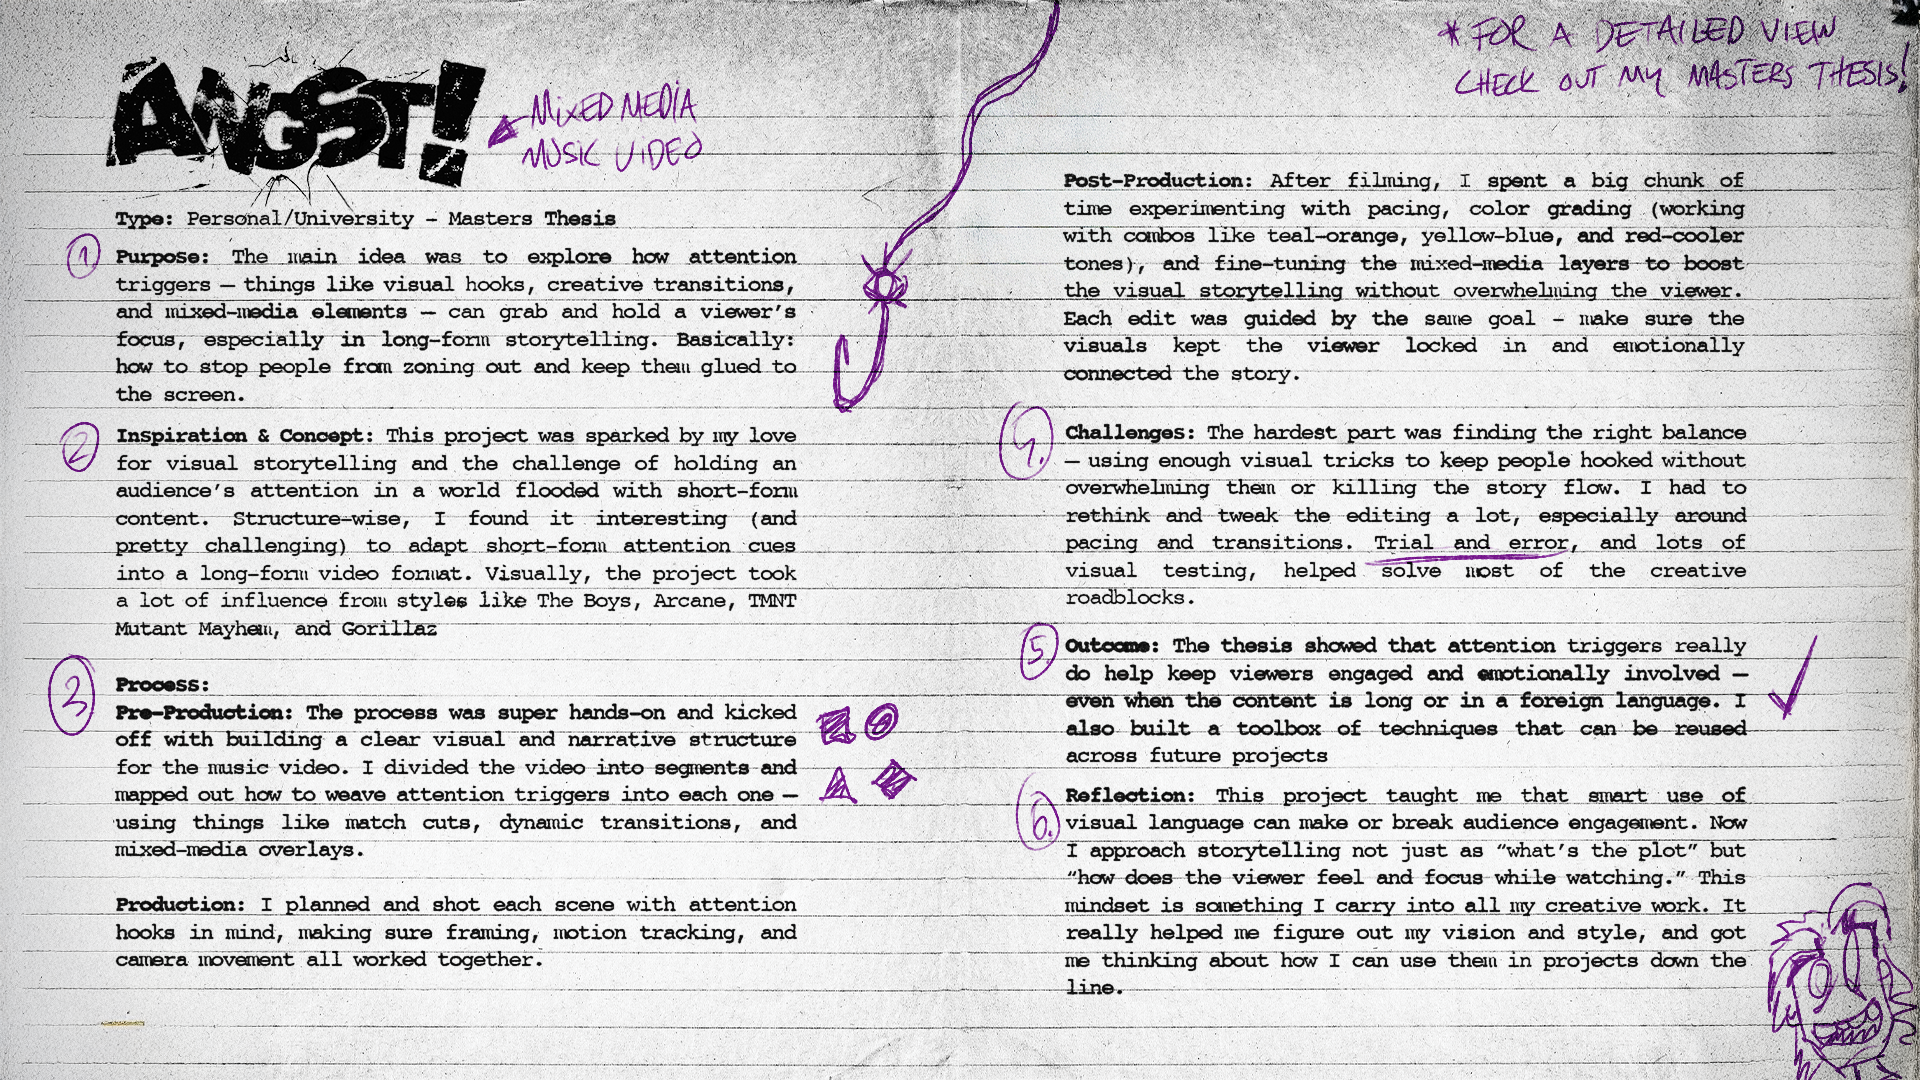 ANGST!
MIXED MEDIA
MUSIC VIDEO
* FOR A DETAILED VIEW
CHECK OUT MY MASTERS THESIS!
Type: Personal/University - Masters Thesis
1
Purpose: The main idea was to explore how attention
triggers — things like visual hooks, creative transitions,
and mixed-media elements — can grab and hold a viewer's
focus, especially in long-form storytelling. Basically:
how to stop people from zoning out and keep them glued to
the screen.
2
Inspiration & Concept: This project was sparked by my love
for visual storytelling and the challenge of holding an
audience's attention in a world flooded with short-form
content. Structure-wise, I found it interesting (and
pretty challenging) to adapt short-form attention cues
into a long-form video format. Visually, the project took
a lot of influence from styles like The Boys, Arcane, TMNT
Mutant Mayhem, and Gorillaz
3
Process:
Pre-Production: The process was super hands-on and kicked
off with building a clear visual and narrative structure
for the music video. I divided the video into segments and
mapped out how to weave attention triggers into each one —
using things like match cuts, dynamic transitions, and
mixed-media overlays.
Production: I planned and shot each scene with attention
hooks in mind, making sure framing, motion tracking, and
camera movement all worked together.
Post-Production: After filming, I spent a big chunk of
time experimenting with pacing, color grading (working
with combos like teal-orange, yellow-blue, and red-cooler
tones), and fine-tuning the mixed-media layers to boost
the visual storytelling without overwhelming the viewer.
Each edit was guided by the same goal - make sure the
visuals kept the viewer locked in and emotionally
connected the story.
4.
Challenges: The hardest part was finding the right balance
— using enough visual tricks to keep people hooked without
overwhelming them or killing the story flow. I had to
rethink and tweak the editing a lot, especially around
pacing and transitions. Trial and error, and lots of
visual testing, helped solve most of the creative
roadblocks.
5.
Outcome: The thesis showed that attention triggers really
do help keep viewers engaged and emotionally involved —
even when the content is long or in a foreign language. I
also built a toolbox of techniques that can be reused
across future projects
6.
Reflection: This project taught me that smart use of
visual language can make or break audience engagement. Now
I approach storytelling not just as "what's the plot" but
"how does the viewer feel and focus while watching." This
mindset is something I carry into all my creative work. It
really helped me figure out my vision and style, and got
me thinking about how I can use them in projects down the
line.